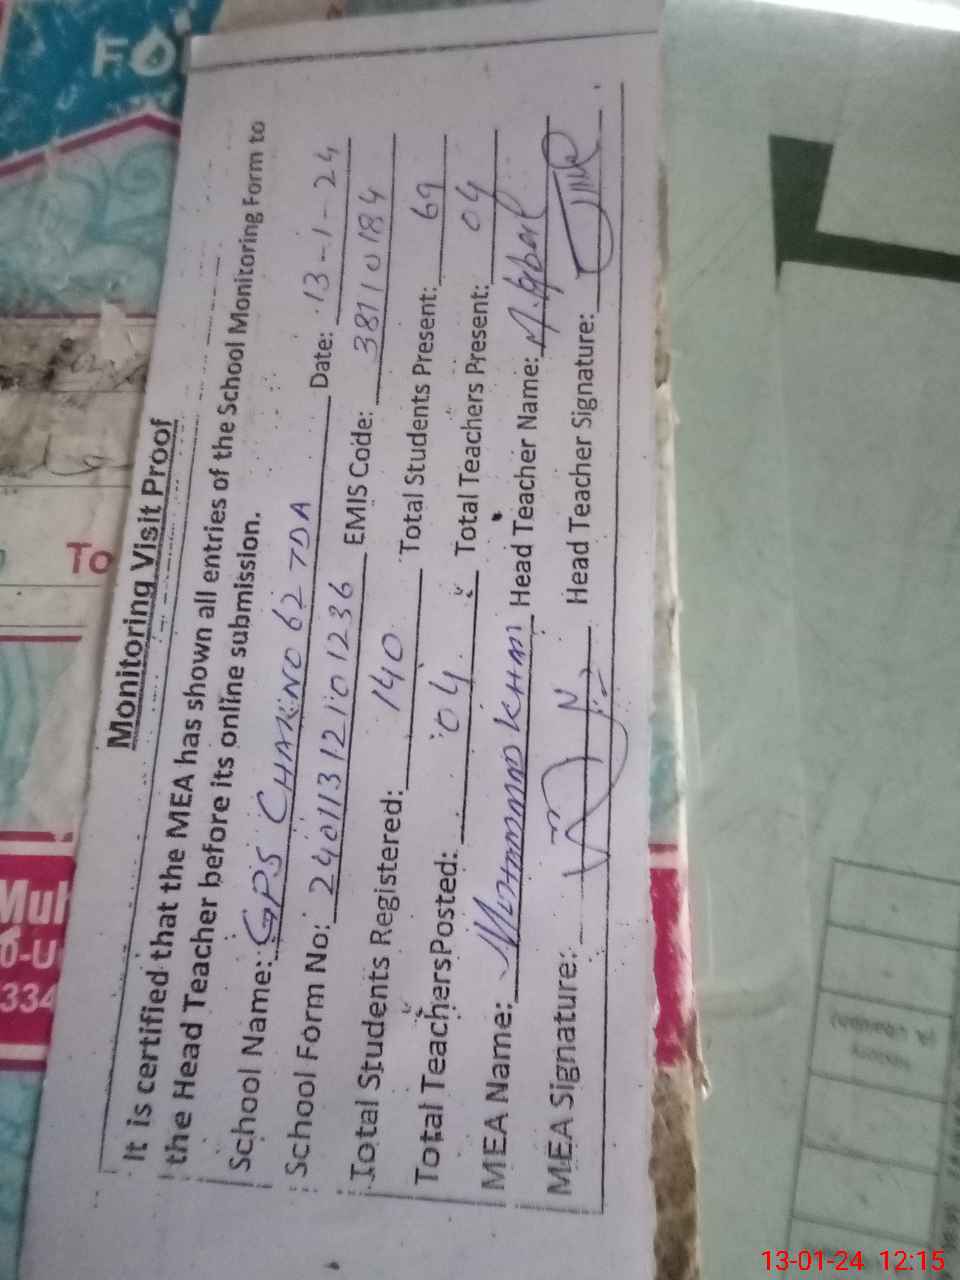 Monitoring Visit Proof
It is certified that the MEA has shown all entries of the School Monitoring Form to
the Head Teacher before its online submission.
School Name: GPS CHAK NO 62 TDA Date: 13-1-24
School Form No: 24011312101236 EMIS Code: 38110184
Total Students Registered: 140 Total Students Present: 69
Total Teachers Posted: 04 Total Teachers Present: 04
MEA Name: Muhammad Khan Head Teacher Name: M. Iqbal
MEA Signature: Head Teacher Signature:
FO
To
Muh
0-U
334
13-01-24 12:15